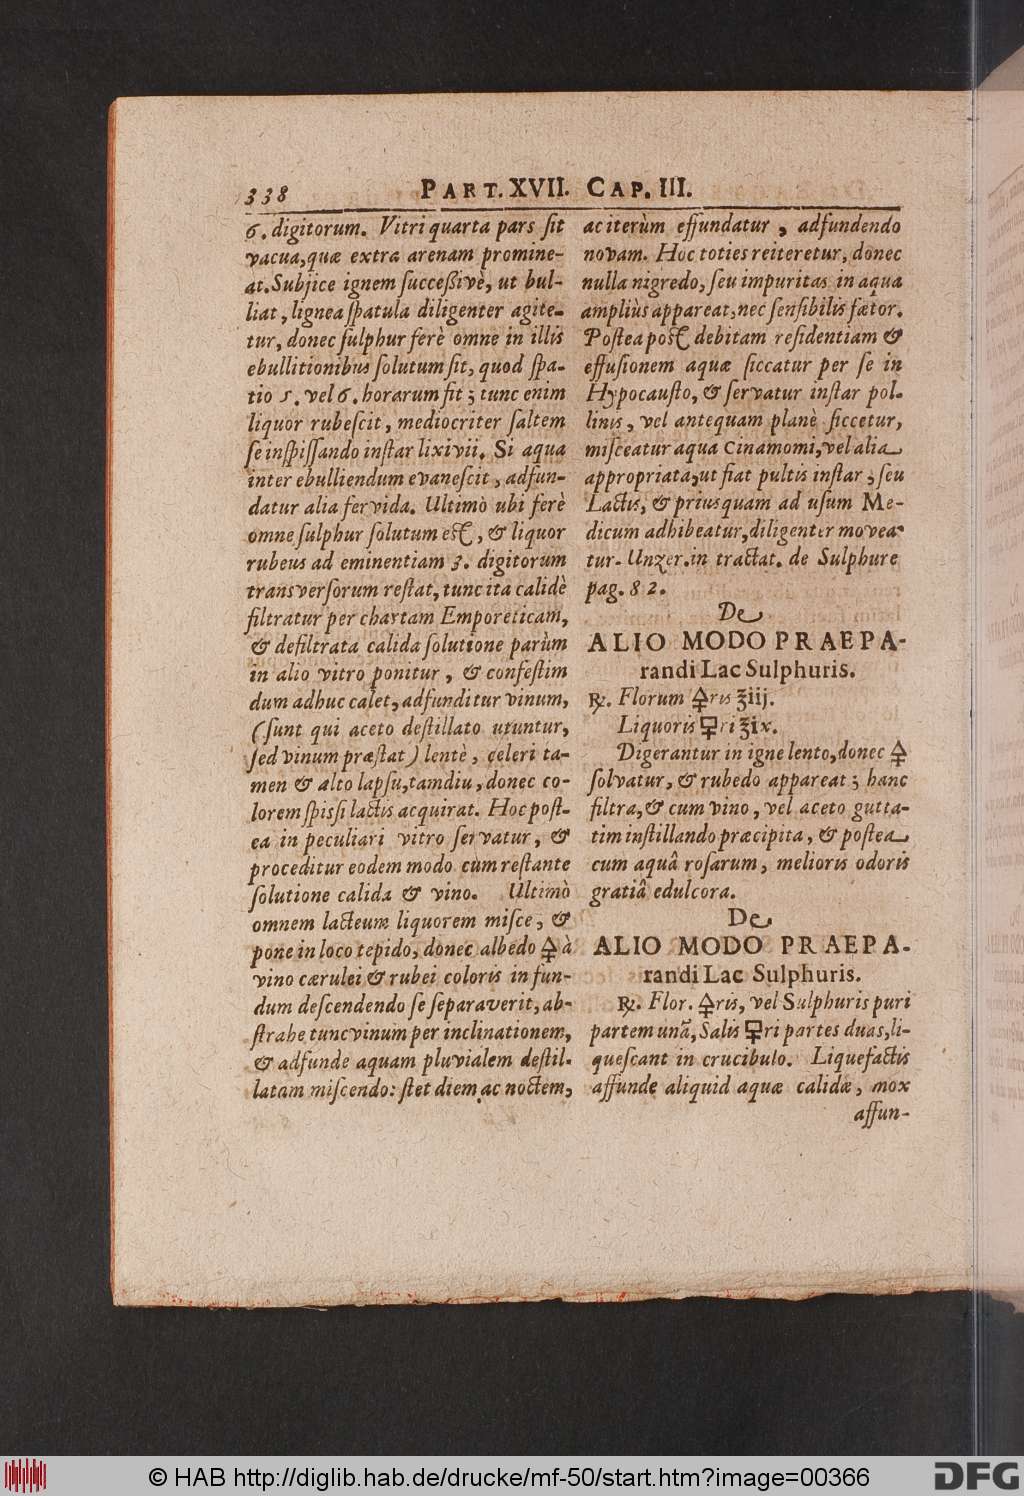 338 PART. XVII. CAP. III.
6. digitorum. Vitri quarta pars ſit
vacua, quæ extra arenam promine-
at. Subjice ignem ſucceßivè, ut bul-
liat, lignea ſpatula diligenter agite-
tur, donec ſulphur ferè omne in illis
ebullitionibus ſolutum ſit, quod ſpa-
tio 5. vel 6. horarum fit; tunc enim
liquor rubeſcit, mediocriter ſaltem
ſe inſpiſſando inſtar lixivii. Si aqua
inter ebulliendum evaneſcit, adfun-
datur alia fervida. Ultimò ubi ferè
omne ſulphur ſolutum eſt, & liquor
rubeus ad eminentiam 3. digitorum
transverſorum reſtat, tunc ita calidè
filtratur per chartam Emporeticam,
& defiltrata calida ſolutione parùm
in alio vitro ponitur, & confeſtim
dum adhuc calet, adfunditur vinum,
(ſunt qui aceto deſtillato utuntur,
ſed vinum præſtat) lentè, celeri ta-
men & alto lapſu, tamdiu, donec co-
lorem ſpisſi lactis acquirat. Hoc poſt-
ea in peculiari vitro ſervatur, &
proceditur eodem modo cum reſtante
ſolutione calida & vino. Ultimò
omnem lacteum liquorem miſce, &
pone in loco tepido, donec albedo 🜍 à
vino cærulei & rubei coloris in fun-
dum deſcendendo ſe ſeparaverit, ab-
ſtrahe tunc vinum per inclinationem,
& adfunde aquam pluvialem deſtil-
latam miſcendo: ſtet diem ac noctem,
ac iterùm effundatur, adfundendo
novam. Hoc toties reiteretur, donec
nulla nigredo, ſeu impuritas in aqua
ampliùs appareat, nec ſenſibilis fœtor.
Poſtea poſt debitam reſidentiam &
effuſionem aquæ ſiccatur per ſe in
Hypocauſto, & ſervatur inſtar pol-
linis, vel antequam planè ſiccetur,
miſceatur aqua Cinamomi, vel alia
appropriata, ut fiat pultis inſtar; ſeu
Lactis, & priusquam ad uſum Me-
dicum adhibeatur, diligenter movea-
tur. Unzer. in tractat. de Sulphure
pag. 82.
De
ALIO MODO PRAEPA-
randi Lac Sulphuris.
℞. Florum 🜍ris ʒiij.
Liquoris 🜿ri ʒix.
Digerantur in igne lento, donec 🜍
ſolvatur, & rubedo appareat; hanc
filtra, & cum vino, vel aceto gutta-
tim inſtillando præcipita, & poſtea
cum aquâ roſarum, melioris odoris
gratiâ edulcora.
De
ALIO MODO PRAEPA-
randi Lac Sulphuris.
℞. Flor. 🜍ris, vel Sulphuris puri
partem unã, Salis 🜿ri partes duas, li-
queſcant in crucibulo. Liquefactis
affunde aliquid aquæ calidæ, mox
affun-
© HAB http://diglib.hab.de/drucke/mf-50/start.htm?image=00366
DFG